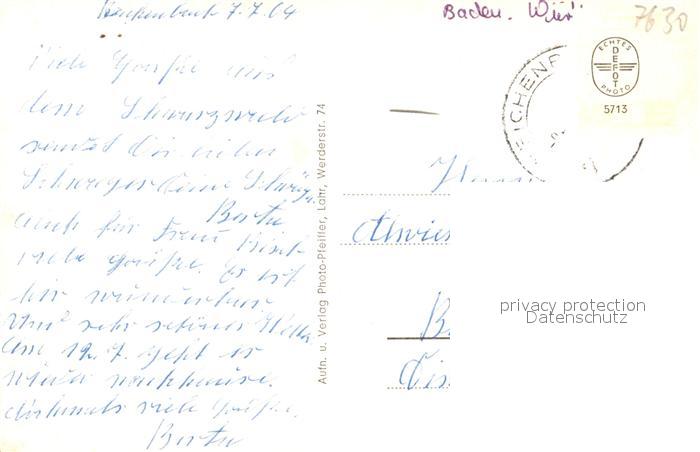 Reichenbach 7.7.64
Viele Grüße aus
dem Schwarzwald
sendet Dir lieber
Schwager Deine Schwäg.
Berta
auch für Frau
viele Grüße. Es ist
hir wunderbar
und sehr schönes
am 12.7. geht es
wieder nachhause.
nochmals viele Grüße.
Berta
Aufn. u. Verlag Photo-Pfeiffer, Lahr, Werderstr. 74
Baden-Würt
7630
ECHTES
DEFOT
PHOTO
5713
Herrn
B.
privacy protection
Datenschutz